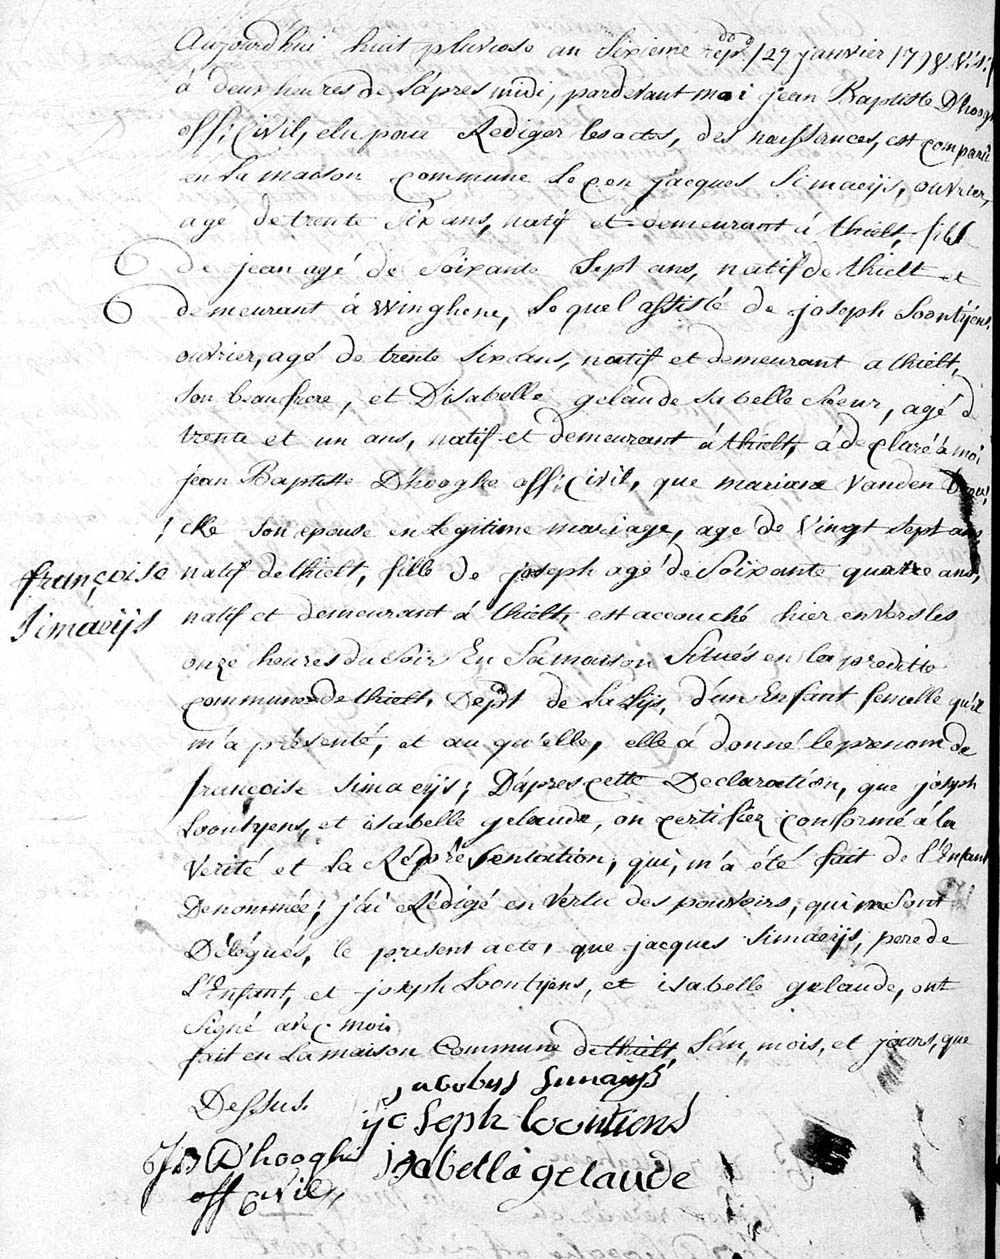 Aujourdhui huit pluviose an Sixieme rep. /27 janvier 1798 V: St:/
à deux heures de L'apres midi, pardevant moi jean Baptiste Dhooghe
off: Civil, elu pour Rediger les actes, des naissances, est comparu
en La maison commune Le cen jacques Simaeijs, ouvrier,
age de trente Six ans, natif et demeurant à thielt, fils
de jean agé de Soixante Sept ans, natif de thielt et
demeurant à Winghene, Le quel assisté de joseph Loontijens
ouvrier, agé de trente Six ans, natif et demeurant a thielt,
Son beaufrere, et D'isabelle gelaude Sa belle Soeur, agé de
trente et un ans, natif et demeurant à thielt, à declaré à moi
jean Baptiste D'hooghe off: Civil, que mariane Vanden
elle Son epouse en Legitime mariage, age de Vingt Sept ans
françoise Simaeijs
natif de thielt, fille de joseph agé de Soixante quatre ans,
natif et demeurant à thielt, est accouché hier en vers les
onze heures du Soir En Sa maison Situés en la predite
commune de thielt, Dept de La Lijs, d'un Enfant femelle qu'il
m'a présenté, et au qu'elle, elle à donné le prenom de
françoise Simaeijs; D'apres cette Declaration, que joseph
Loontyens, et isabelle gelaude, on certifiez conforme à la
Verité et La Réprésentation, qui, m'a été fait de L'Enfant
Denommée; j'ai Rédigé en Vertu des pouvoirs, qui me Sont
Délégués, le present acte, que jacques Simaeijs, pere de
L'Enfant, et joseph Loontijens, et isabelle gelaude, ont
Signé avec moi
fait en La maison Commune de thielt, L'an, mois, et jours, que
Dessus.
Jacobus Simaeijs
ijoseph loontiens
JB D'hooghe
isabella gelaude
off civil